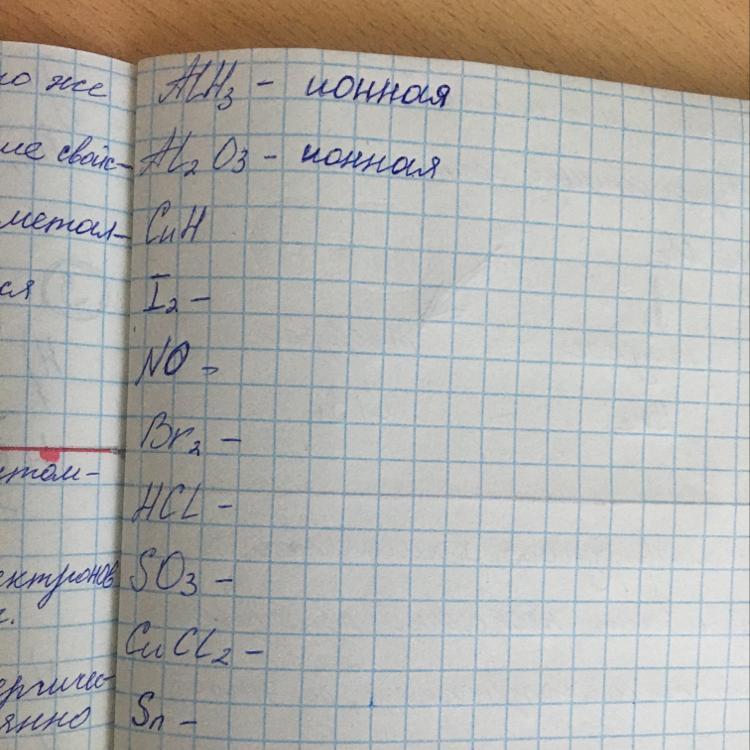 о же
ме свойс-
метал-
ся
атом-
ектронов
янно
AlH3 - ионная
Al2O3 - ионная
CuH
I2 -
NO -
Br2 -
HCl -
SO3 -
CuCl2 -
Sn -